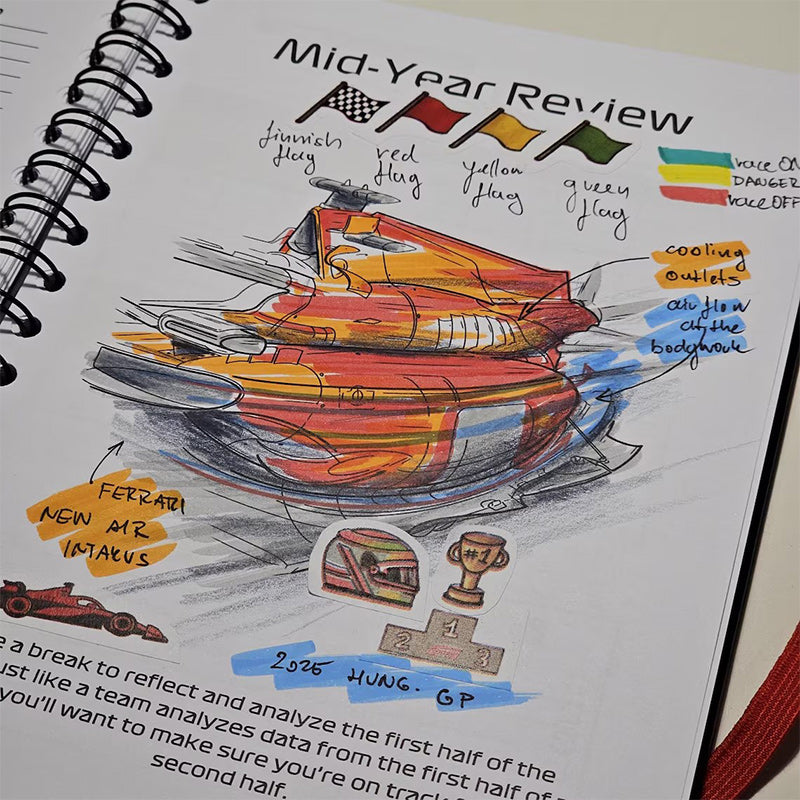 Mid-Year Review
finnish
flag
red
flag
yellow
flag
green
flag
race ON
DANGER
race OFF
cooling
outlets
air flow
at the
bodywork
FERRARI
NEW AIR
INTAKUS
#1
1
2
3
2025 HUNG. GP
a break to reflect and analyze the first half of the
ust like a team analyzes data from the first half of
you'll want to make sure you're on track
second half.